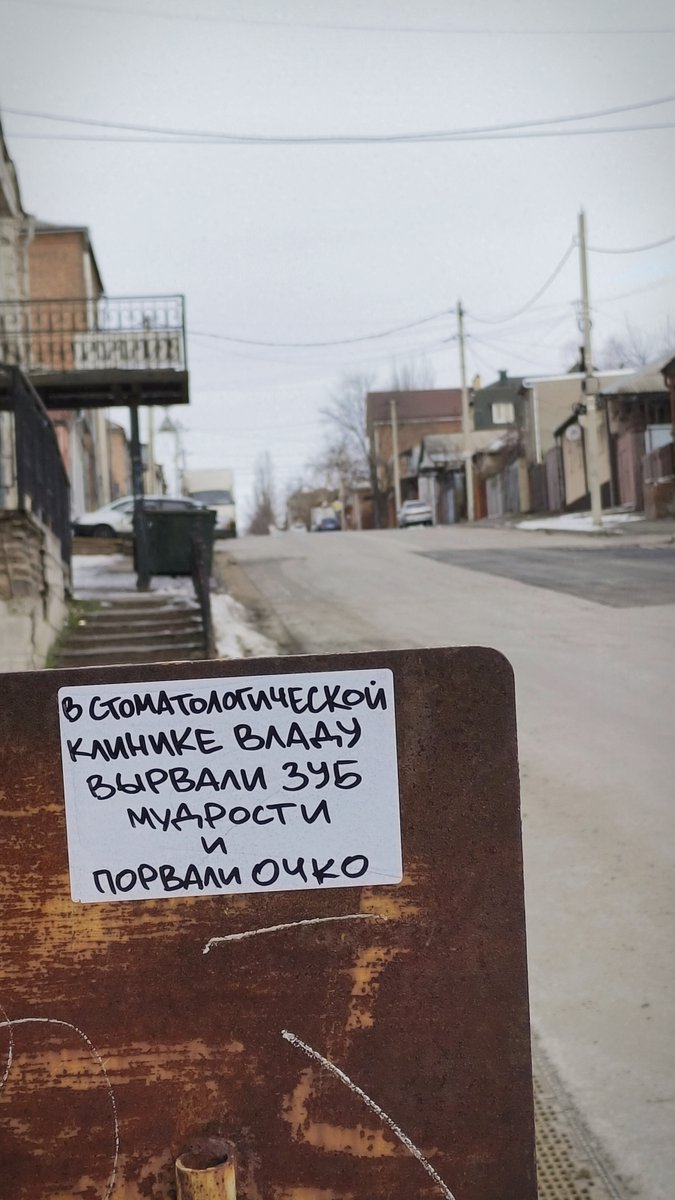 В СТОМАТОЛОГИЧЕСКОЙ
КЛИНИКЕ ВЛАДУ
ВЫРВАЛИ ЗУБ
МУДРОСТИ
И
ПОРВАЛИ ОЧКО